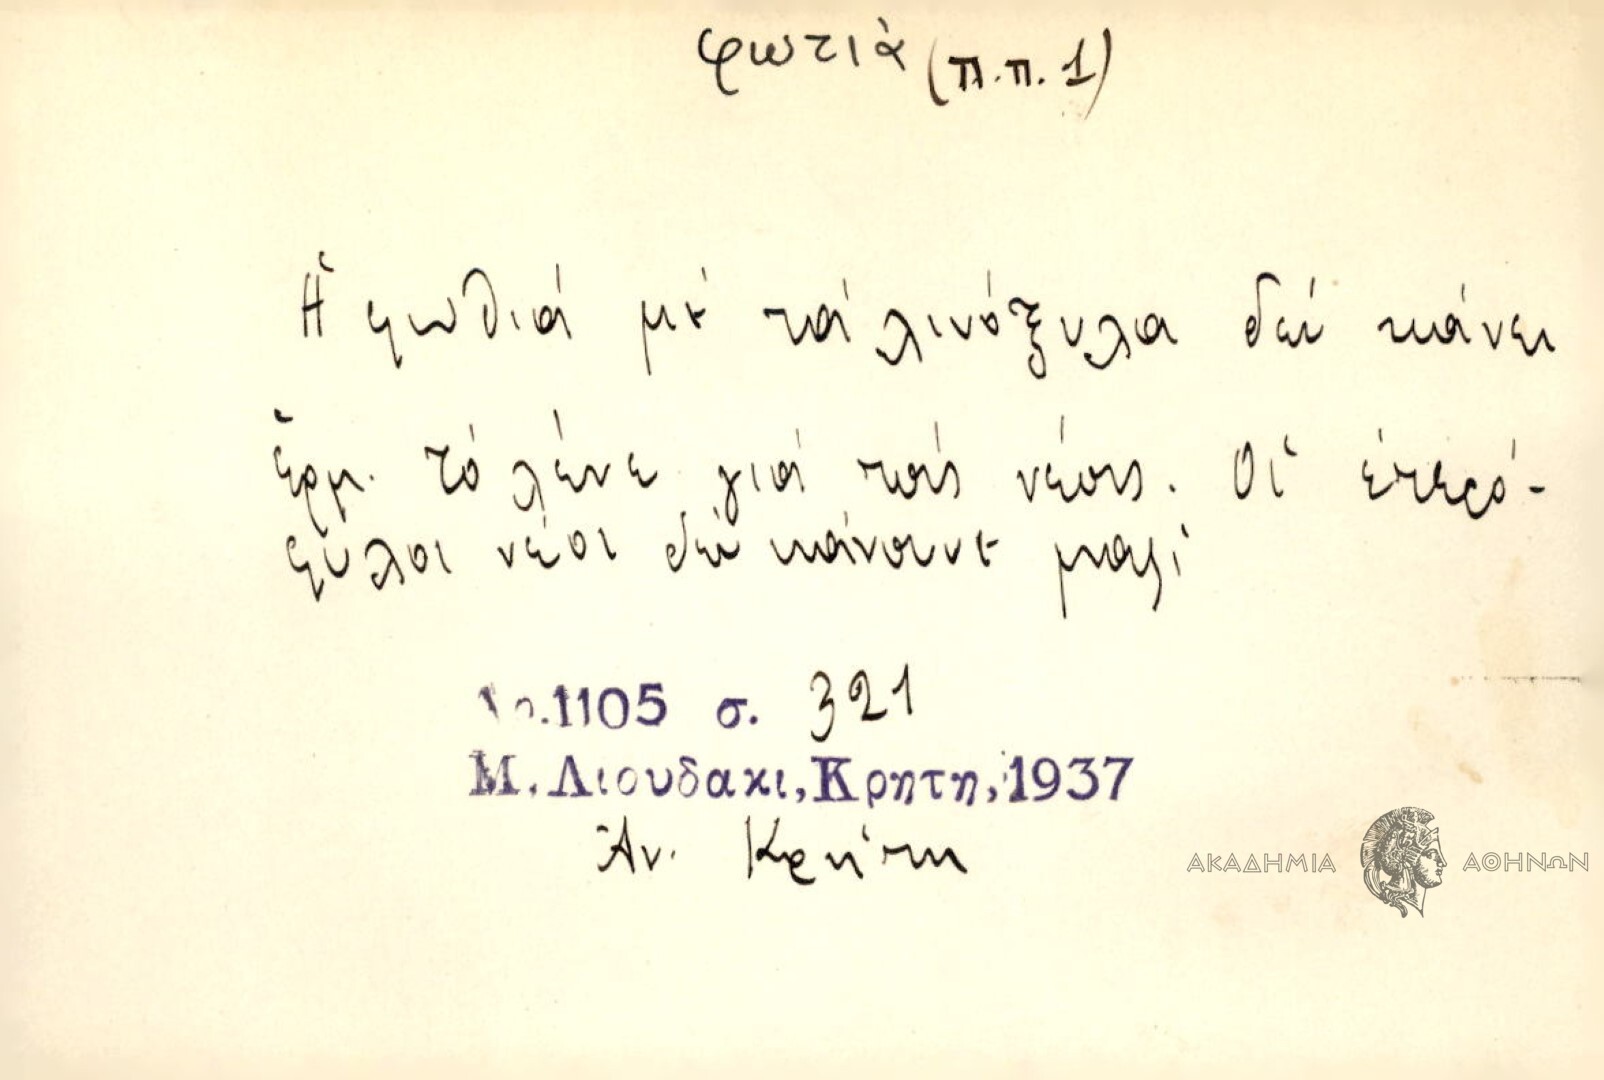 φωτιά (π.π. 1)
Ἡ φωθιά μέ τά λινόξυλα δέν κάνει
Ἑρμ. τό λένε γιά τούς νέους. Οἱ ἑτερό-
φυλοι νέοι δέν κάνουνε μαζί
Αρ.1105 σ. 321
Μ. Λιουδακι, Κρητη, 1937
Ἀν. Κρήτη
ΑΚΑΔΗΜΙΑ ΑΘΗΝΩΝ